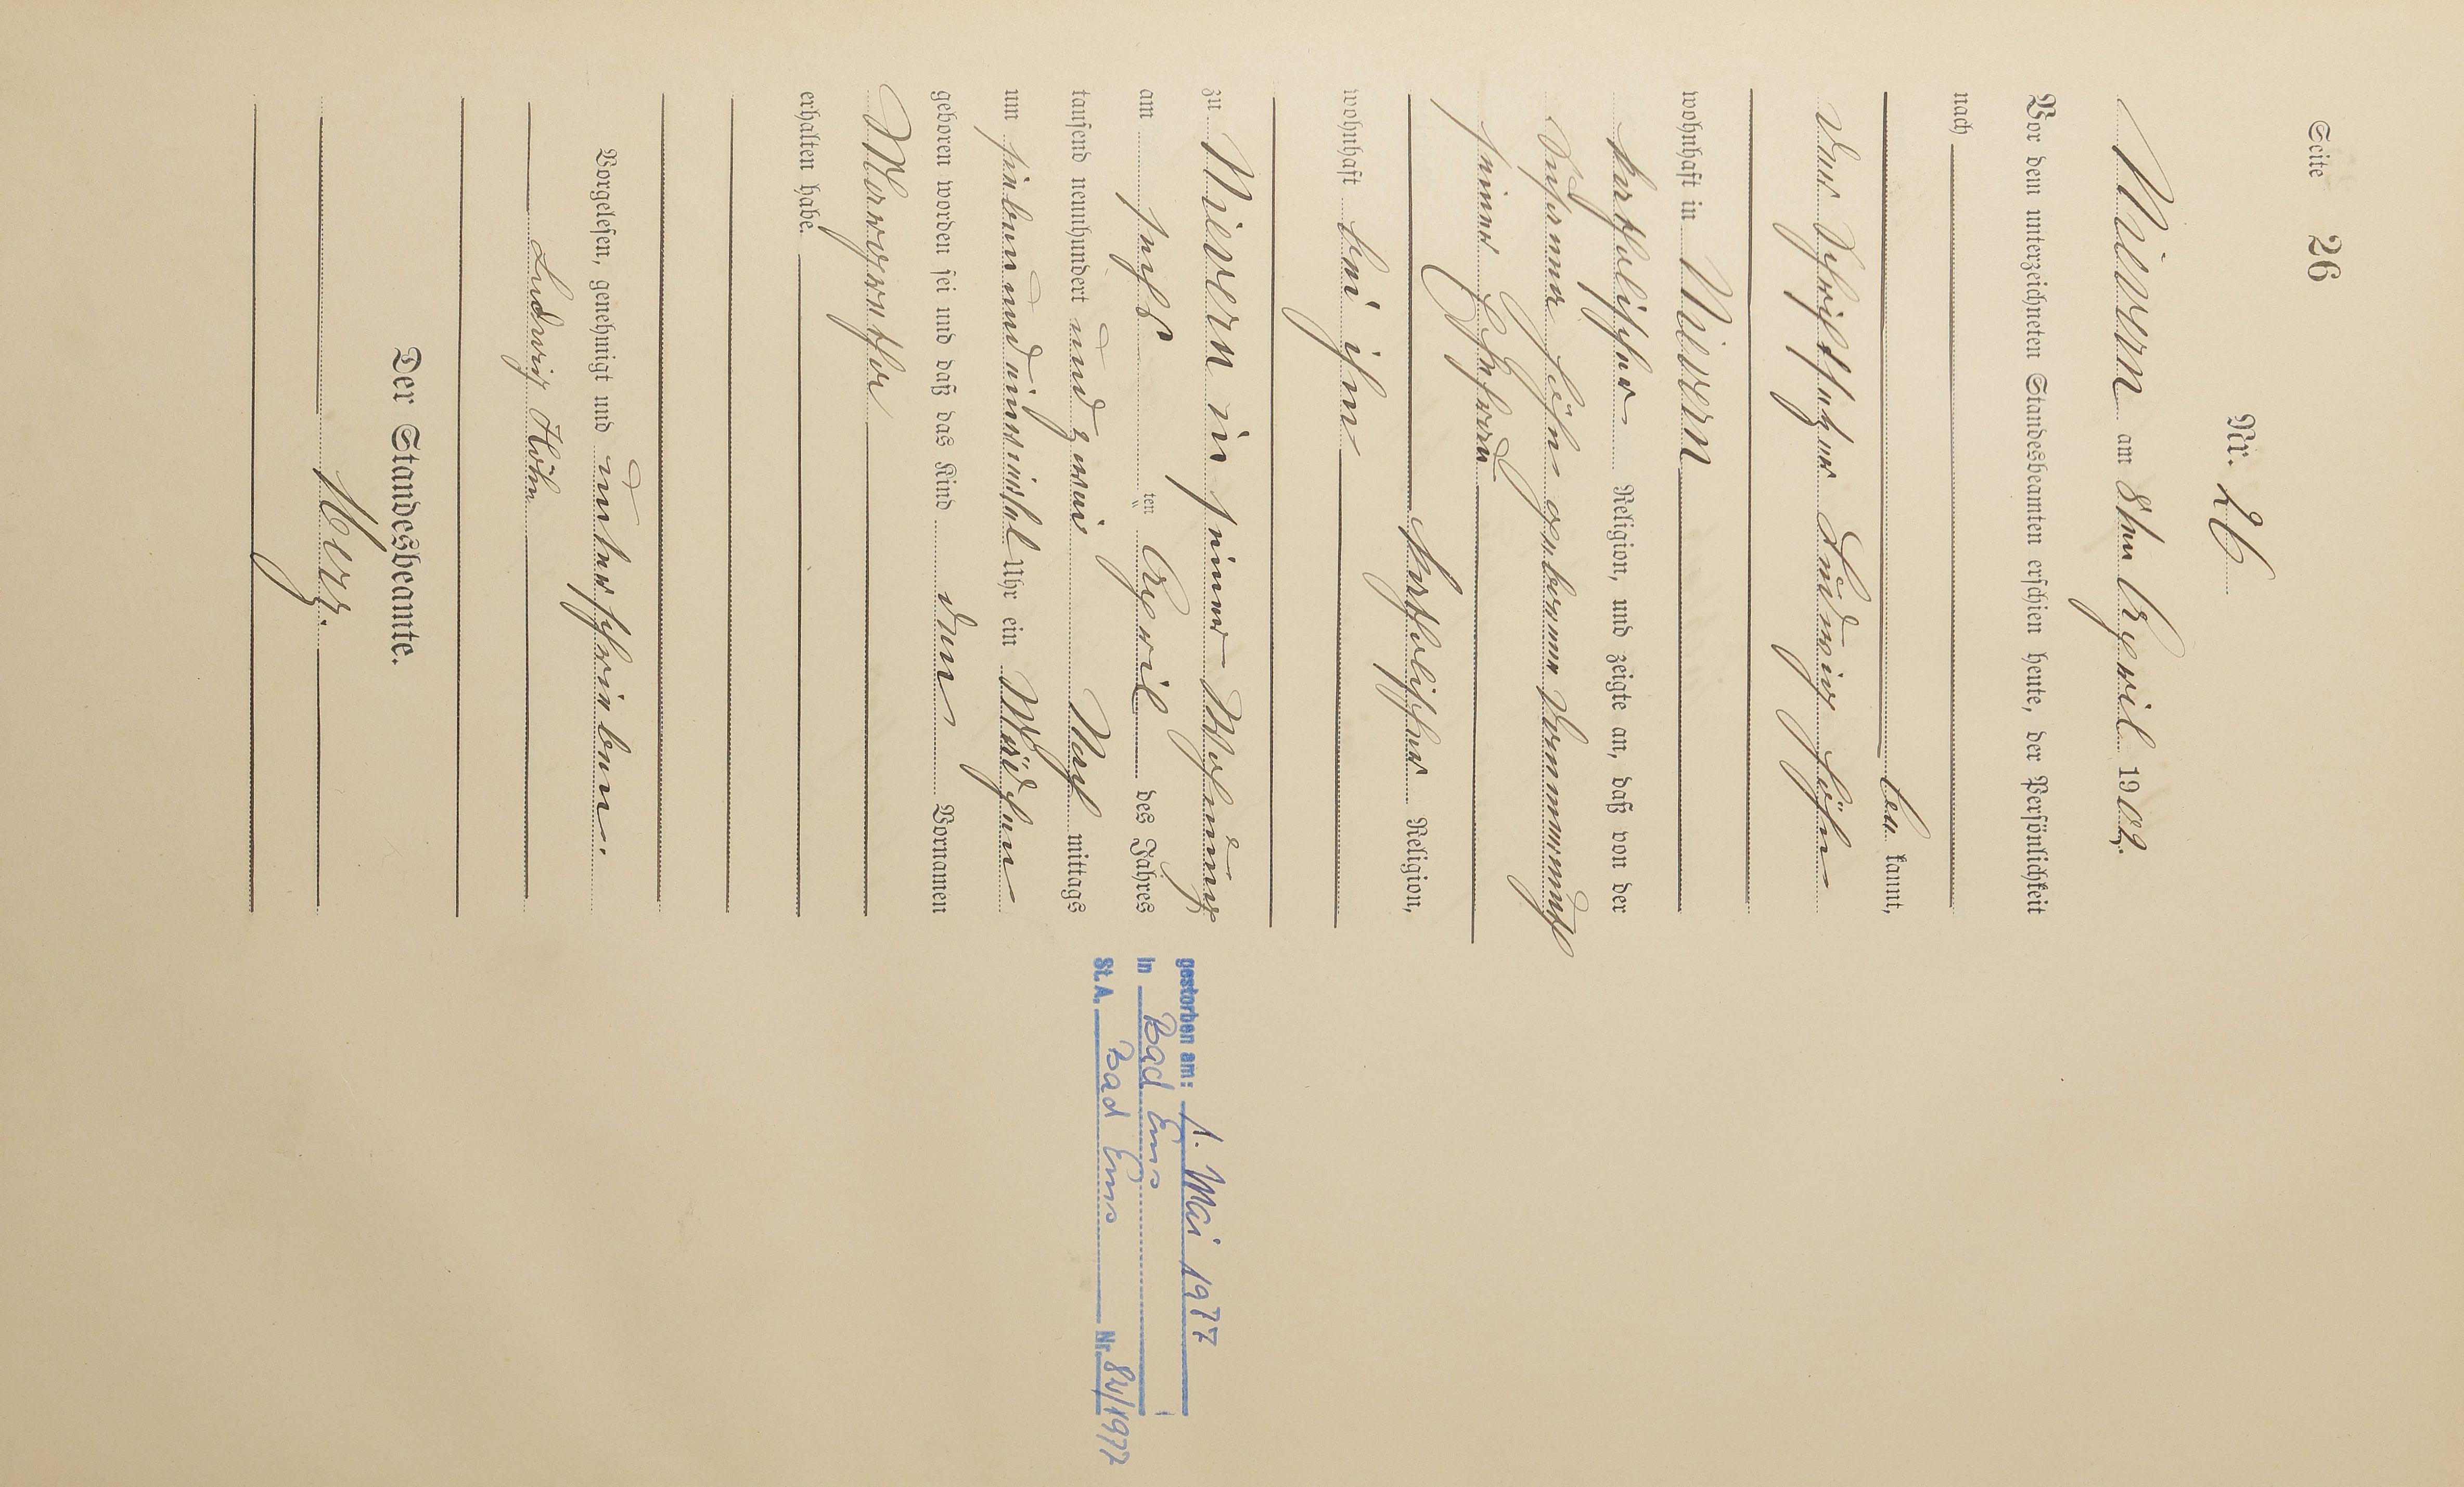 Seite 26
Nr. 26
Nievern am 8ten April 1902.
Vor dem unterzeichneten Standesbeamten erschien heute, der Persönlichkeit
nach
be kannt,
der Schriftsetzer Ludwig Höhn
wohnhaft in Nievern
katholischer Religion, und zeigte an, daß von der
Höhn geborene
seiner Ehefrau
katholischer Religion,
wohnhaft bei ihm
zu Nievern in seiner Wohnung
am sechs ten April des Jahres
tausend neunhundert und zwei Nach mittags
um sieben und einviertel Uhr ein Mädchen
geboren worden sei und daß das Kind den Vornamen
Margaretha
erhalten habe.
Vorgelesen, genehmigt und unterschrieben.
Ludwig Höhn
Der Standesbeamte.
gestorben am: 1. Mai 1977
in Bad Ems
St.A. Bad Ems Nr. 82/1977